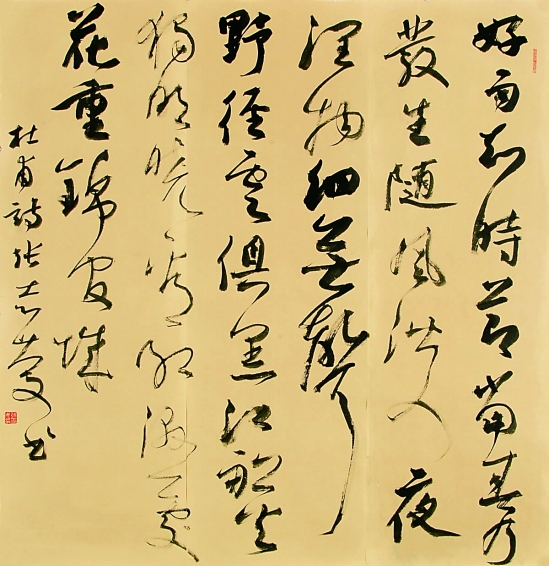 好雨知時節當春乃
發生随風潛入夜
潤物細無聲
野徑雲俱黑江船火
獨明曉看紅濕處
花重錦官城
杜甫詩張志慶书